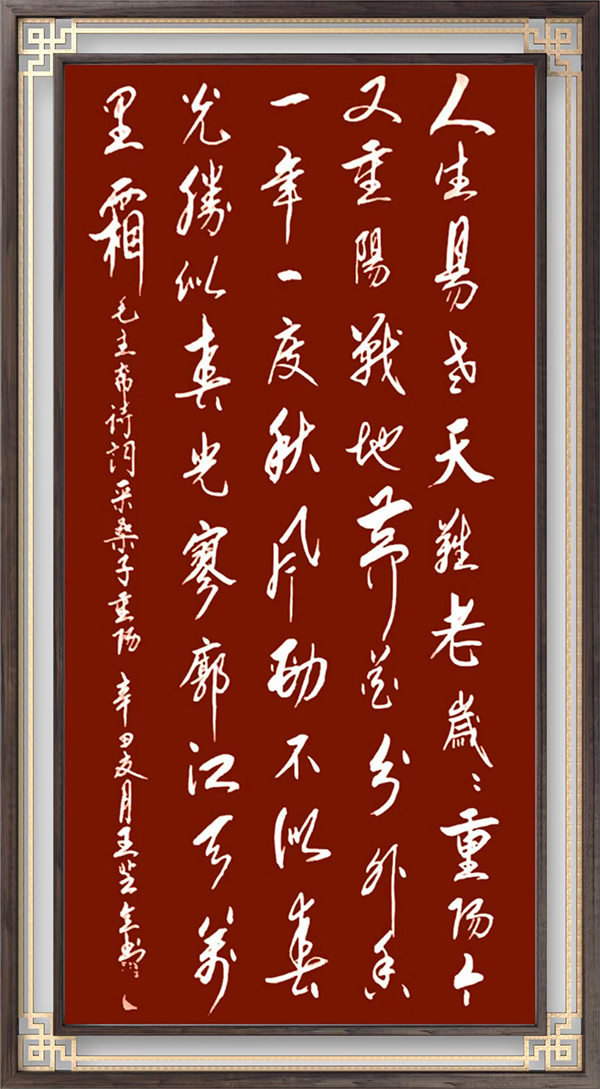 人生易老天難老歲〻重阳今
又重陽戰地黄花分外香
一年一度秋风勁不似春
光勝似春光寥廓江天萬
里霜
毛主席诗词采桑子重阳 辛丑夏月王